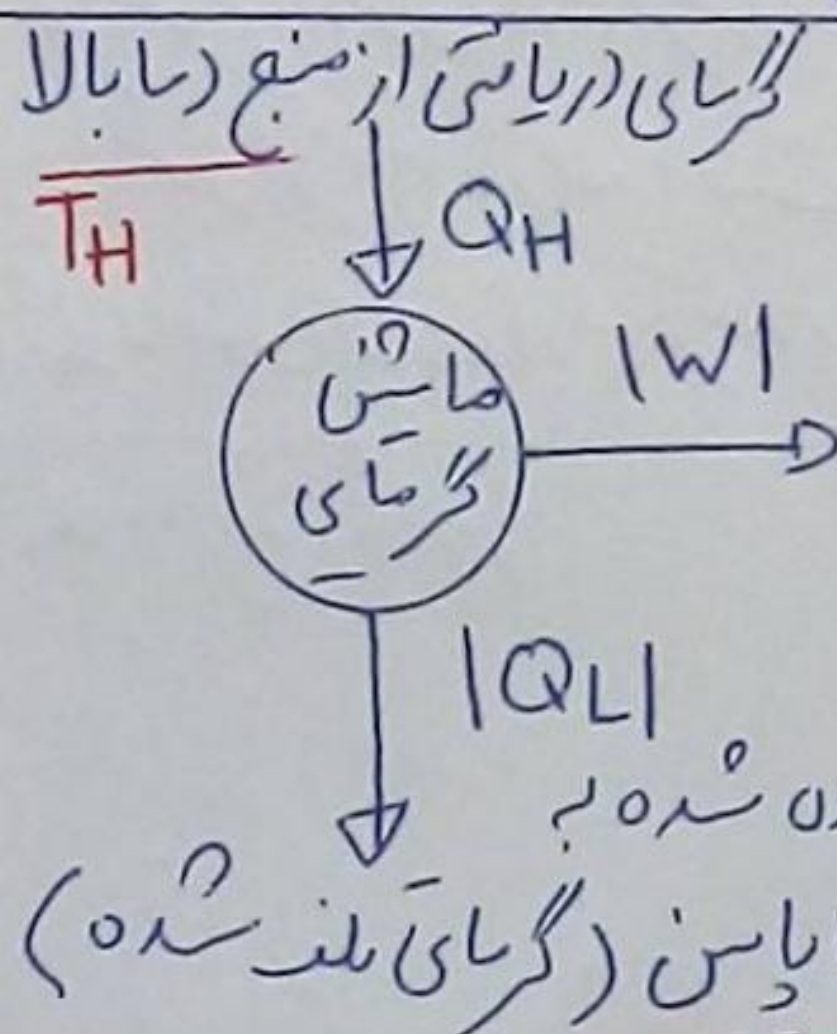 گرمای دریافتی از منبع دما بالا
TH
QH
ماشین
گرمای
|W|
|QL|
شده به
پایین (گرمای تلف شده)